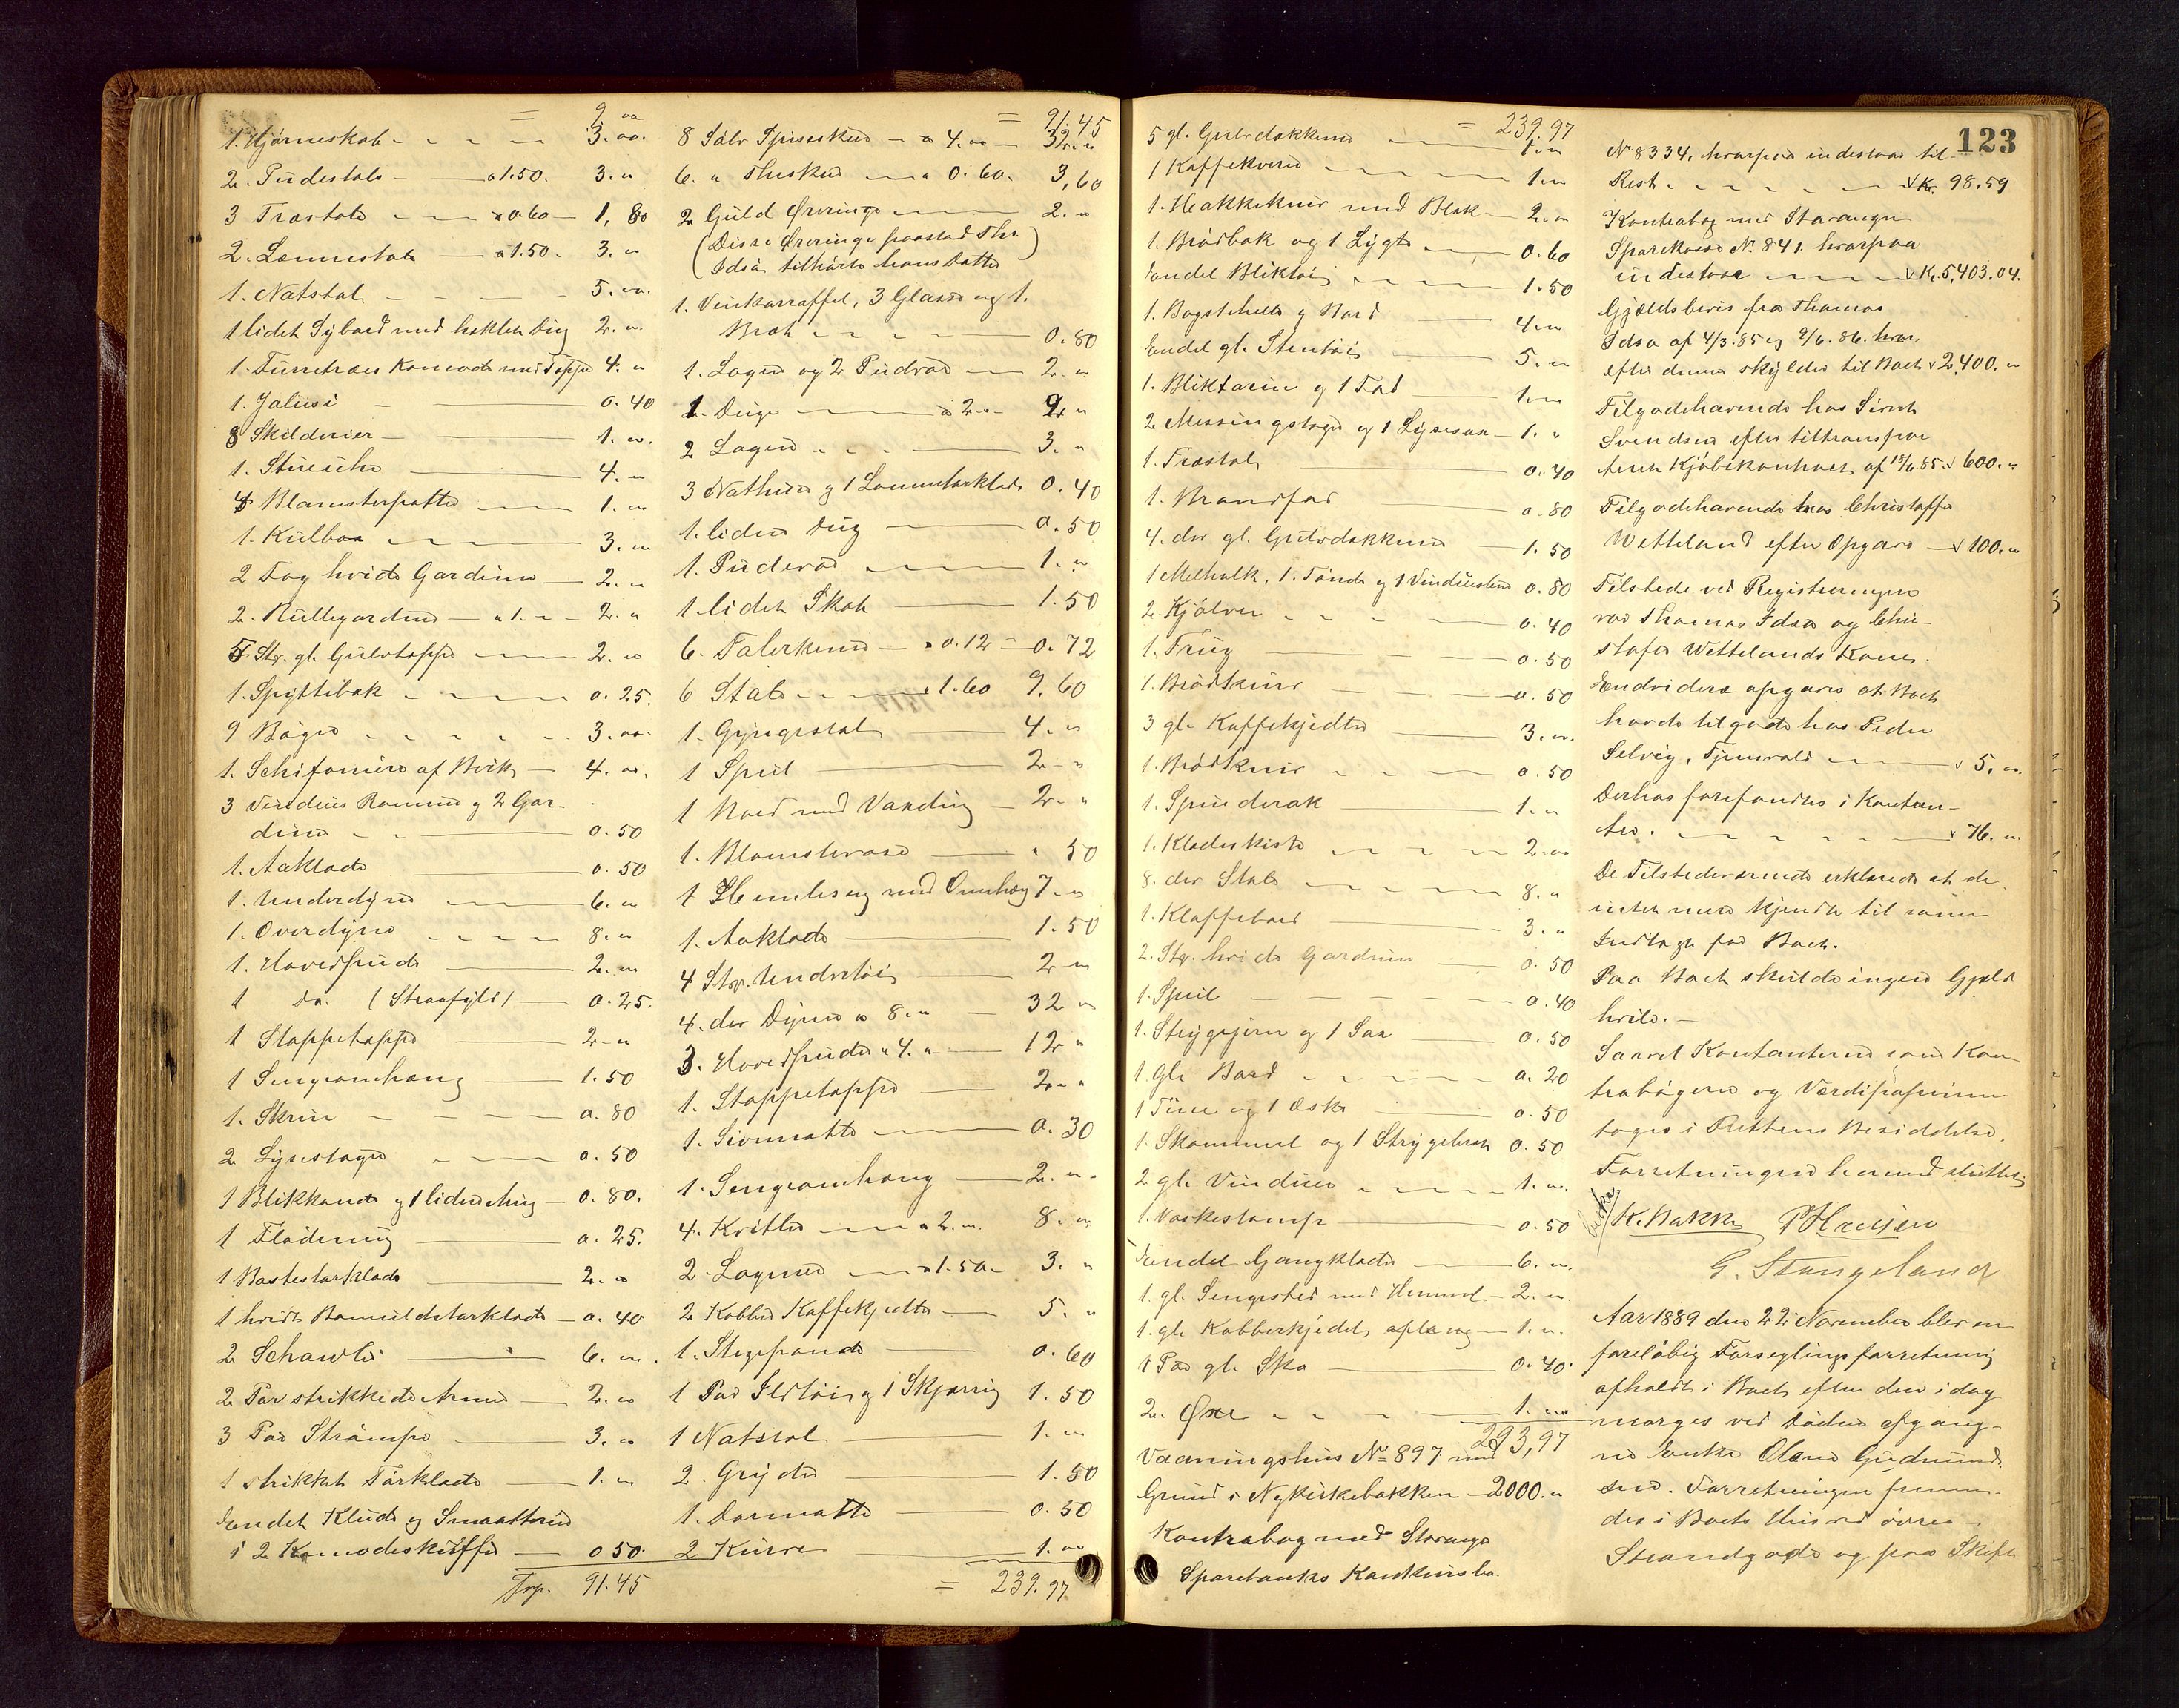 = 9.00
1. Hjørneskab - - - - 3.00.
2. Pudestole - a 1.50. 3. "
3 Træstole - - - a 0.60 - 1,80
2. Lænnestole - a 1.50. 3. "
1. Natstol - - - - 5.00.
1 lidet Sybord med heklet Dug 2. "
1. Furretræes Komode med Teppe 4. "
1. Jalusi - 0.40
8 Skilderier - 1.00.
1. Stueuhr - 4. "
4 Blomsterpotter - 1. "
1. Kulbox - 3. "
2 Fag hvide Gardiner - 2. "
2. Rullegardiner - a 1. - 2. "
5 Stk. gl. Gulvtepper - 2. "
1. Spyttebak - - - - 0.25.
9 Bøger - - - - 3.00.
1. Schifonière af Birk - 4.00.
3 Vindues Rammer og 2 Gar-
diner - - 0.50
1. Aaklæde 0.50
1. Underdyne - 6. "
1. Overdyne - - - - 8. "
1. Hovedpude - 2. "
1 do. (Straafyld) - 0.25.
1 Stoppeteppe - 2. "
1 Sengeomhæng - 1.50
1. Skrin - - - - 0.80
2 Lysestager - - - 0.50
1 Blikkande og 1 liden Mug - 0.80.
1 Flødemug - 0.25.
1 Bastetørklæde - 2. "
1 hvidt Bomuldstørklæde - 0.40
2 Schawler - 6. "
2 Par strikkede Ærmer - 2. "
3 Par Strømper - 3. "
1 strikket Tørklæde - 1. "
Endel Klude og Smaatterier
i 2 Komodeskuffer - 0 50.
Trp. 91.45
= 91.45
8 Sølv Spiseskeer - a 4.00 - 32. "
6. " Theskeer - a 0.60. 3,60
2 Guld Øreringe - 2. "
(Disse Øreringe paastod Ths.
Idsøe tilhørte hans Datter)
1. Vinkarraffel, 3 Glasse og 1.
Bræt - - - - 0.80
1. Lagen og 2 Pudevar - 2. "
1. Duge - a 2. - 2. "
2 Lagen - - - 3. "
3 Nathuer og 1 Lommetørklæde 0.40
1. liden Dug - 0.50
1. Pudevar - 1. "
1. lidet Skab - 1.50
6. Talerkener - a 0.12 - 0.72
6 Stole - - a 1.60 9.60
1. Gyngestol - 4. "
1 Speil - 2. "
1 Bord med Voxdug - 2. "
1. Blomstervase - " 50
1 Himmelseng med Omhæng 7. "
1. Aaklæde - 1.50
4 Stkr. Undertøi - 2 "
4. der Dyner a 8. " - 32 "
3. Hovedpuder a 4. " - 12 "
1. Stoppeteppe - 2. "
1. Sivmatte - 0.30
1. Sengeomhæng - 2. "
4. Kvitler - a 2. " 8. "
2. Lagener - a 1.50 - 3. "
2 Kobber Kaffekjedler - 5. "
1. Stegepande - 0.60
1 Par Ildtøi og 1 Skjærrig 1.50
1 Natstol - 1. "
2. Gryder - 1.50
1. Dørmatte - 0.50
2 Kurve - 1.00
= 239.97
= 239.97
5 gl. Gulvdækkener - 1. "
1 Kaffekværn - - - - 1. "
1. Hakkekniv med Bræt - 2. "
1. Brødbak og 1 Lygte - 0.60
Endel Bliktøi - - - 1.50
1. Bagstehelle og Bord - 4. "
Endel gl. Stentøi - 5. "
1. Bliktærin og 1 Fad - 1. "
2 Messingstager og 1 Lysesax - 1. "
1. Træstol - 0.40
1. Brandfad 0.80
4. der gl. Gulvdækkener - 1.50
1 Melhalk, 1. Tønde og 1 Vinduesten 0.80
2. Kjølver - - - - 0.40
1. Trug - 0.50
1. Brødkniv - - - 0.50
3 gl. Kaffekjedler - 3. "
1. Brødkniv - - - 0.50
1. Spinderok 1. "
1. Klædeskiste - - - - 2.00
8. der Stole - - - - 8. "
1. Klaffebord - 3. "
2. Stkr. hvide Gardiner - 0.50
1. Speil - - - - 0.40
1. Strygejern og 1 Sax - 0.50
1. gl. Bord - - - - 0.20
1 Tine og 1 Æske - 0.50
1. Skammel og 1 Strygebræt 0.50
2 gl. Vinduer - - - - 1. "
1. Vaskestamp - 0.50
Endel Gangklæder - 6. "
1. gl. Sengested med Himmel - 2. "
1. gl. Kobberkjedel, oplæg - 1. "
1 Par gl. Sko - 0.40.
2. Øxe - - - 1. "
293,97
Vaaningshus No 897 med
Grund i Nykirkebakken - 2000. "
Kontrabog med Stavanger
Sparebanks Konkursbo.
123
No 8334, hvorpaa indestaar til
Rest - - - - - Kr. 98,59
Kontrabog med Stavanger
Sparekasse No 841 hvorpaa
indestaar - - - - Kr. 5,403,04.
Gjældsbevis fra Thomas
Idsøe af 4/3.85 og 9/6.86. hvor
efter denne skylder til Boet 2,400. "
Tilgodehavende hos Sivert
Svendsen efter tiltranspor
teret Kjøbekontrakt af 18/6 85. 600. "
Tilgodehavende hos Christoffer
Wetteland efter Opgave - 100. "
Tilstede ved Registreringen
var Thomas Idsøe og Chri-
stofer Wettelands Kone.
Endvidere opgaves at Boet
havde tilgode hos Peder
Selvig, Tjensvold - 5. "
Derhos forefandtes i Kontan-
ter. - - - - 76. "
De Tilstedeværende erklærede at de
intet mere kjendte til som
Indtægt for Boet.
Paa Boet skulde ingen Gjæld
hvile. -
Saavel Kontanterne som Kon-
trabøgerne og Værdipapirerne
toges i Rettens Besiddelse.
Forretningen hermed sluttet
K. Bakke P Hansen
G. Stangeland
Aar 1889 den 22 November blev en
foreløbig Forseglingsforretning
afholdt i Boet efter den idag
morges ved Døden afgang-
ne Enke Olene Gudmund-
sen. Forretningen fremm-
des i Boets Hus ved øvre
Strandgade og paa Skifte